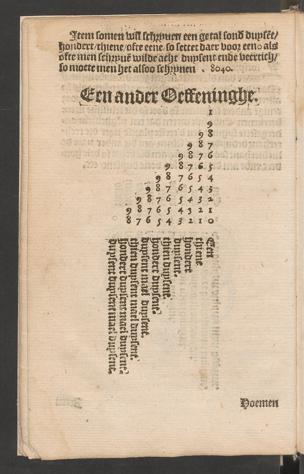 Item somen wilt schryven een getal sond duyset/
hondert/thiene/ofte eene so settet daer voor een 0 als
ofte men schryve wilde acht duysent ende veertich/
so moette men het alsoo schryven . 8040.
Een ander Oeffeninghe.
1
9
9 8
9 8 7
9 8 7 6
9 8 7 6 5
9 8 7 6 5 4
9 8 7 6 5 4 3
9 8 7 6 5 4 3 2
9 8 7 6 5 4 3 2 1
9 8 7 6 5 4 3 2 1 0
Een
thiene
hondert
duysent.
thien duysent.
hondert duysent.
duysent mael duysent.
thien duysent mael duysent.
hondert duysent mael duysent.
duysent duysent mael duysent.
Noemen